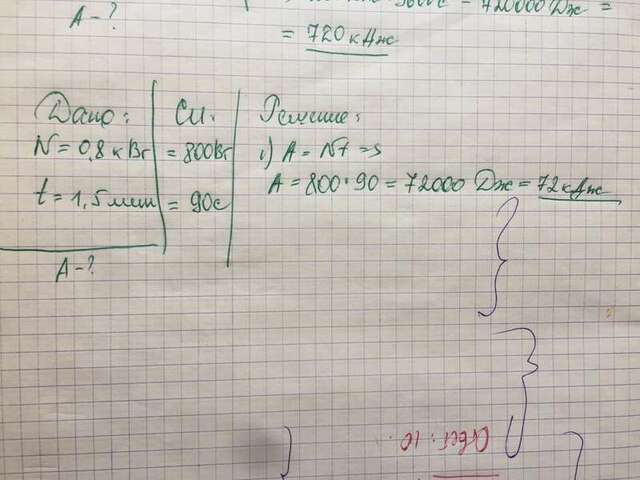 3600с = 720000 Дж =
А - ?
= 720 кДж
Дано: СИ. Решение:
N = 0,8 кВт = 800Вт 1) A = Nt =>
A = 800 · 90 = 72000 Дж = 72 кДж
t = 1,5 мин = 90с
А - ?
Ответ: 10.